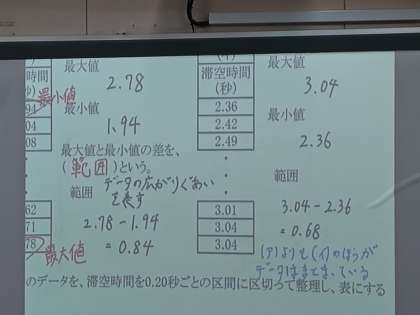 最大値
2.78
時間
秒)
最小値
94
04
08
最小値
1.94
最大値と最小値の差を、
(範囲)という。
データの広がりぐあい
を表す
範囲
62
71
78
最大値
2.78-1.94
=0.84
滞空時間
(秒)
2.36
2.42
2.49
3.01
3.04
3.04
最大値
3.04
最小値
2.36
範囲
3.04-2.36
=0.68
(ア)よりも(イ)のほうが
データはまとまっている
のデータを、滞空時間を0.20秒ごとの区間に区切って整理し、表にする